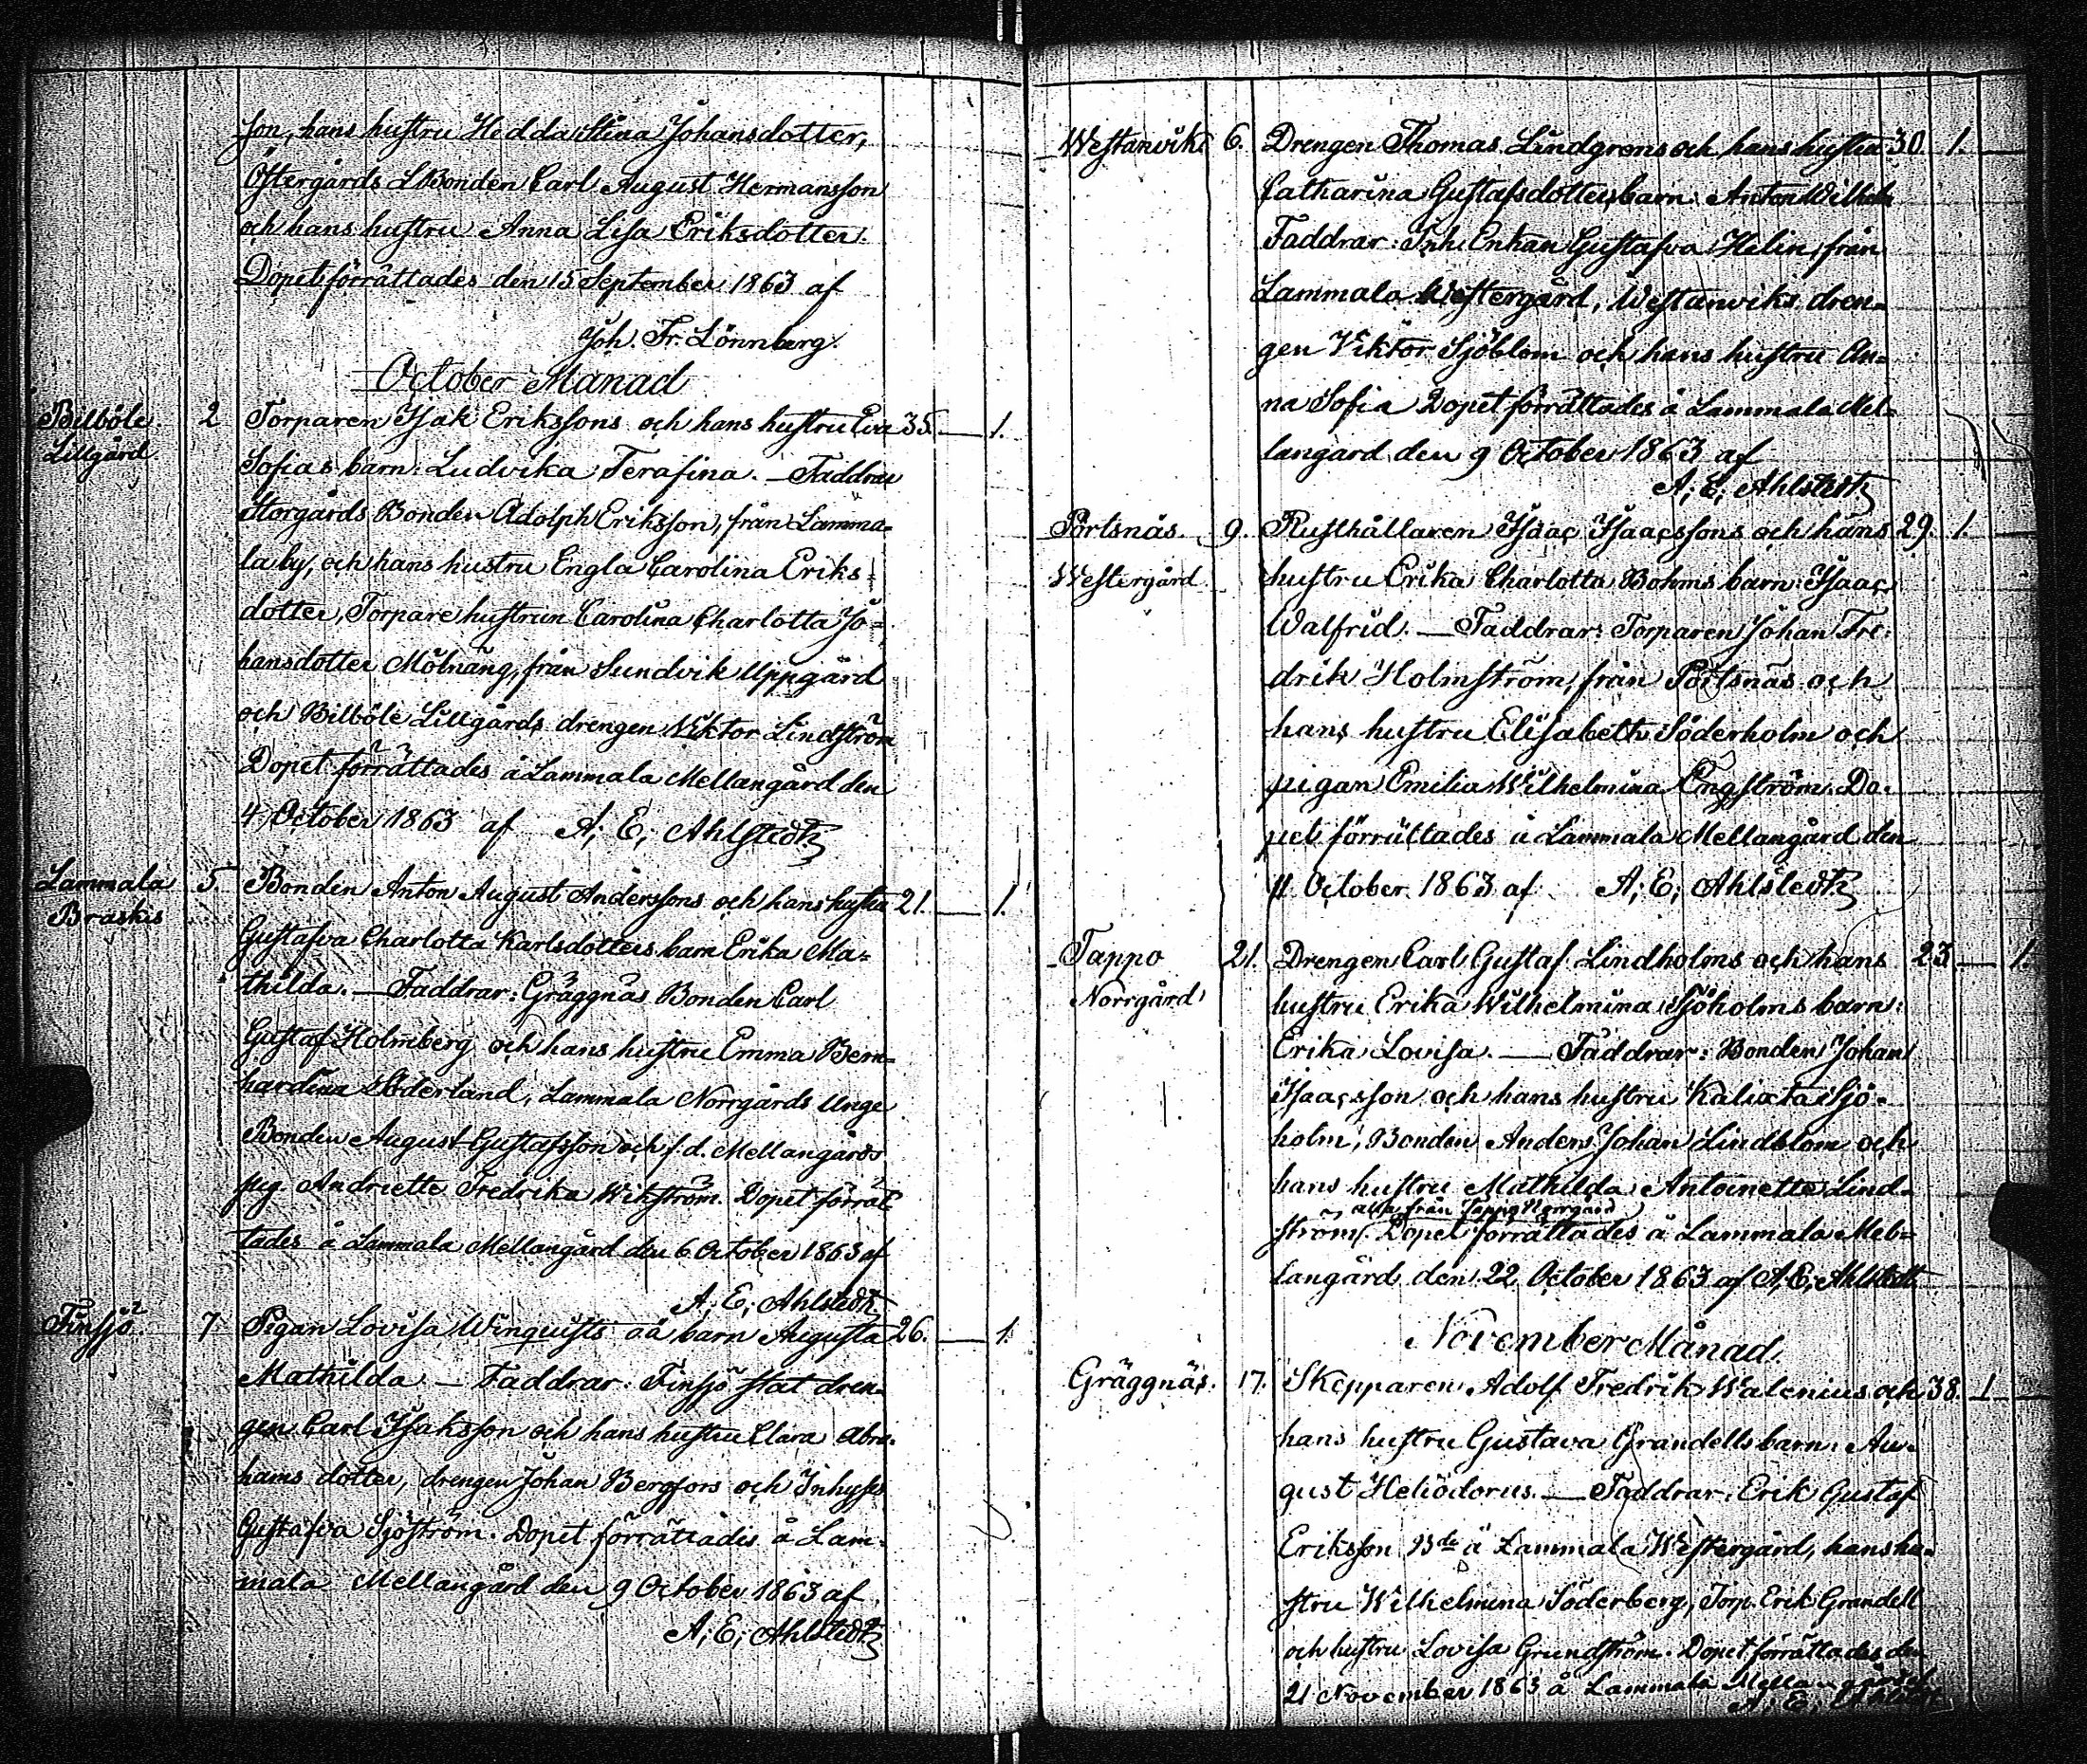 son, hans hustru Hedda Stina Johansdotter,
Östergårds LBonden Carl August Hermansson
och hans hustru Anna Lisa Eriksdotter.
Dopet förrättades den 15 September 1863 af
Joh. Fr. Lönnberg.
October Månad
Bilböle 2 Torparen Isak Erikssons och hans hustru Eva 35. — 1.
Lillgård
Sofias barn: Ludvika Serafina. — Faddrar
Storgårds Bonden Adolph Eriksson, från Lamma=
la by, och hans hustru Engla Carolina Eriks=
dotter, Torpare hustrun Carolina Charlotta Jo=
hansdotter Mölnäng, från Sundvik Uppgård
och Bilböle Lillgårds drengen Viktor Lindström
Dopet förrättades å Lammala Mellangård den
4 October 1863 af A; E; Ahlstedt
Lammala 5. Bonden Anton August Anderssons och hans hustru 21. — 1.
Braskis
Gustafva Charlotta Karlsdotters barn Erika Ma=
thilda. — Faddrar: Gräggnäs Bonden Carl
Gustaf Holmberg och hans hustru Emma Bern=
hardina Söderlund, Lammala Norrgårds Unge
Bonden August Gustafsson och f.d. Mellangårds
pig. Andriette Fredrika Wikström. Dopet förrät
tades å Lammala Mellangård den 6 October 1863 af
A; E; Ahlstedt
Finsjö 7 Pigan Lovisa Winquists oä barn Augusta 26. — 1.
Mathilda. — Faddrar: Finsjö stat dren=
gen Carl Isaksson och hans hustru Clara Abra=
hams dotter, drengen Johan Bergfors och Inhyses
Gustafva Sjöström. Dopet förrättades å Lam=
mala Mellangård den 9 October 1863 af
A; E; Ahlstedt
Westanvik 6. Drengen Thomas Lindgrens och hans hustru 30. 1. —
Catharina Gustafsdotters barn: Anton Wilhelm
Faddrar: Inh. Enkan Gustafva Helin från
Lammala Westergård, Westanviks dren=
gen Viktor Sjöblom och hans hustru An=
na Sofia Dopet förrättades å Lammala Mel=
langård den 9 October 1863 af
A; E; Ahlstedt
Pörtsnäs. 9. Rusthållaren Isaac Isaacssons och hans 29. 1. —
Westergård
hustru Erika Charlotta Bohms barn: Isaac
Walfrid. — Faddrar: Torparen Johan Fre=
drik Holmström, från Pörtsnäs och
hans hustru Elisabeth Söderholm och
pigan Emilia Wilhelmina Engström. Do=
pet förrättades å Lammala Mellangård den
11 October 1863 af A; E; Ahlstedt
Tappo 21. Drengen Carl Gustaf Lindholms och hans 23 — 1.
Norrgård
hustru Erika Wilhelmina Sjöholms barn:
Erika Lovisa. — Faddrar: Bonden Johan
Isaacsson och hans hustru Kalixta Sjö=
holm, Bonden Anders Johan Lindblom och
hans hustru Mathilda Antoinette Lind=
alla från Tappo Norrgård
ström. Dopet förrättades å Lammala Mel=
langård den 22 October 1863 af A; E; Ahlstedt
November Månad.
Gräggnäs. 17. Skepparen Adolf Fredrik Walenius och 38. 1 —
hans hustru Gustava Grandells barn: Au=
gust Heliodorus. — Faddrar: Erik Gustaf
Eriksson Bde å Lammala Westergård, hans hu=
stru Wilhelmina Söderberg, Torp. Erik Grandell
och hustru Lovisa Grundström. Dopet förrättades den
21 November 1863 å Lammala Mellangård
A; E; Ahlstedt